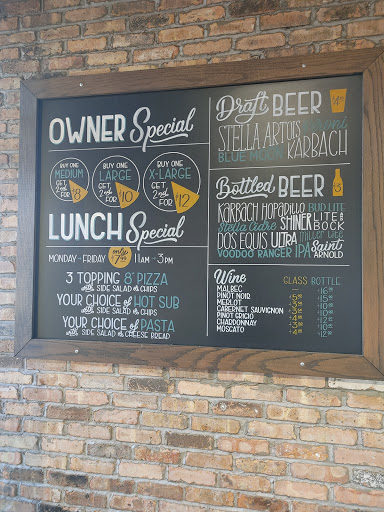 OWNER Special
BUY ONE
MEDIUM
GET
2nd
FOR $8
BUY ONE
LARGE
GET
2nd
FOR $10
BUY ONE
X-LARGE
GET
2nd
FOR $12
LUNCH Special
MONDAY - FRIDAY only 11AM - 3PM
3 TOPPING 8" PIZZA
with SIDE SALAD or CHIPS
YOUR CHOICE of HOT SUB
with SIDE SALAD or CHIPS
YOUR CHOICE of PASTA
with SIDE SALAD or CHEESE BREAD
Draft BEER
STELLA ARTOIS
BLUE MOON KARBACH
Bottled BEER
KARBACH HOPADILLO BUD LITE
Stella Cidre SHINER LITE & BOCK
DOS EQUIS ULTRA MILLER LITE
VOODOO RANGER IPA Saint ARNOLD
Wine CLASS BOTTLE
MALBEC
PINOT NOIR
MERLOT
CABERNET SAUVIGNON
PINOT GRIGIO
CHARDONNAY
MOSCATO